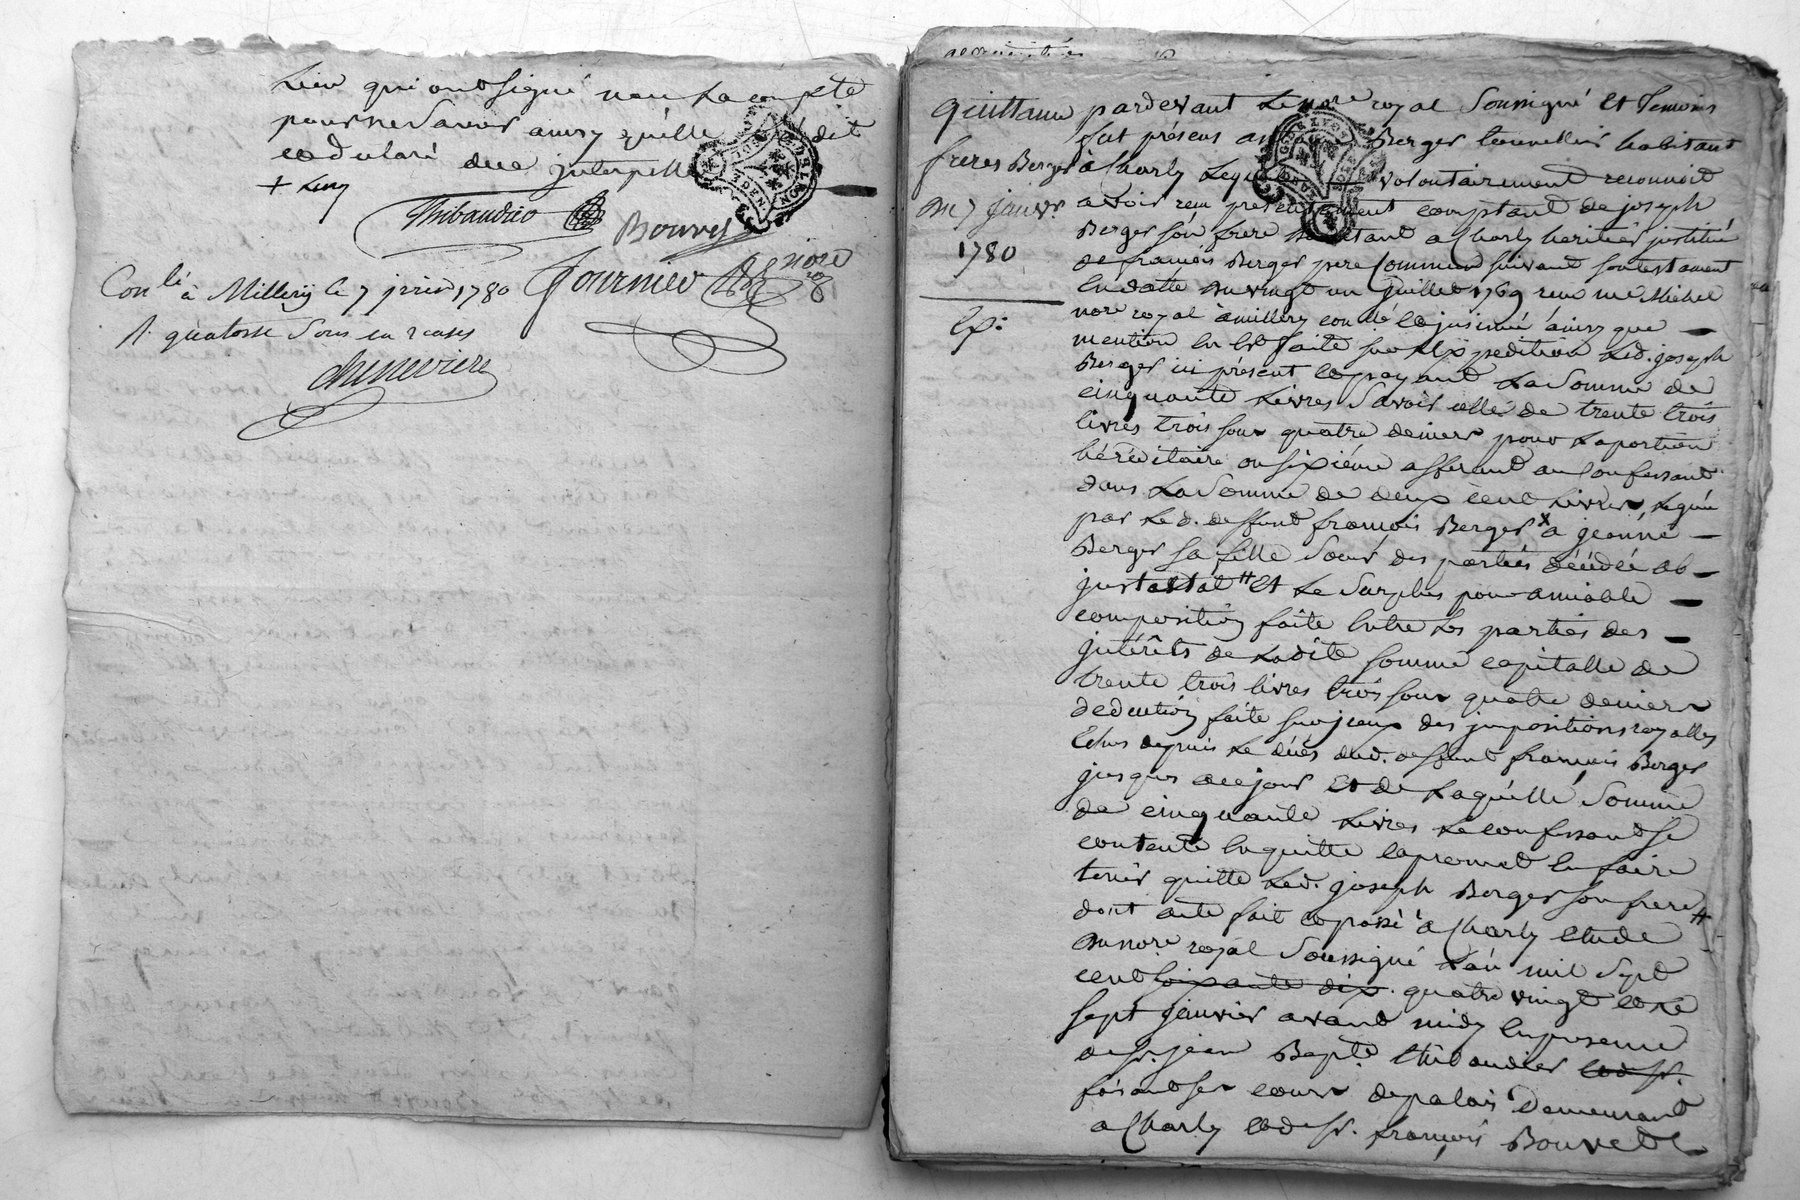 Lieu qui ont signé non la compte
pour ne savoir ainsy quelle dit
et declaré due
Thibaudier
Bouvet
Fournier nore
Conlé à Millery le 7 1780
R. quatorse sous en 2 cases
Cheneviere
Quittance
freres Berger
Du 7 janvr.
1780
Ep:
pardevant Le nore royal Soussigné Et Temoins
fut présent Berger tonnellier habitant
a Charly Lequel volontairement reconnoit
avoir reçu présentement comptant de joseph
Berger son frere habitant a Charly heritier institué
de françois Berger pere Commun suivant son testament
En datte du vingt un juillet 1769 reçu me Michel
nore royal à millery conlé et insinué ainsy que
mention En Est faite sur Lexpedition Led. joseph
Berger ici présent et payant La Somme de
cinquante Livres Savoir celle de trente trois
livres trois sous quatre deniers pour La portion
héréditaire ou sixième afferant au Confessant
dans La Somme de deux cent Livres, Legué
par Le d. deffunt françois Berger x a jeanne
Berger sa fille Soeur des parties décédée ab
intestat # Et Le Surplus pour amiable
composition faite Entre Les parties des
intérêts de Ladite somme capitalle de
trente trois livres trois sous quatre deniers
deduction faite sur iceux des impositions royalles
Echus depuis Le décès dud. deffunt françois Berger
jusques a ce jour Et de Laquelle Somme
de cinquante Livres Le confessant se
contente En quitte et promet En faire
tenir quitte Led. joseph Berger son frere #
dont acte fait et passé à Charly Etude
du nore royal Soussigné L'an mil Sept
cent soixante dix quatre vingt et Le
sept janvier avant midy En presence
de Sr. jean Bapte Thibaudier et de Sr.
faisant ses cours de palais Demeurant
a Charly et de Sr. françois Bouvet